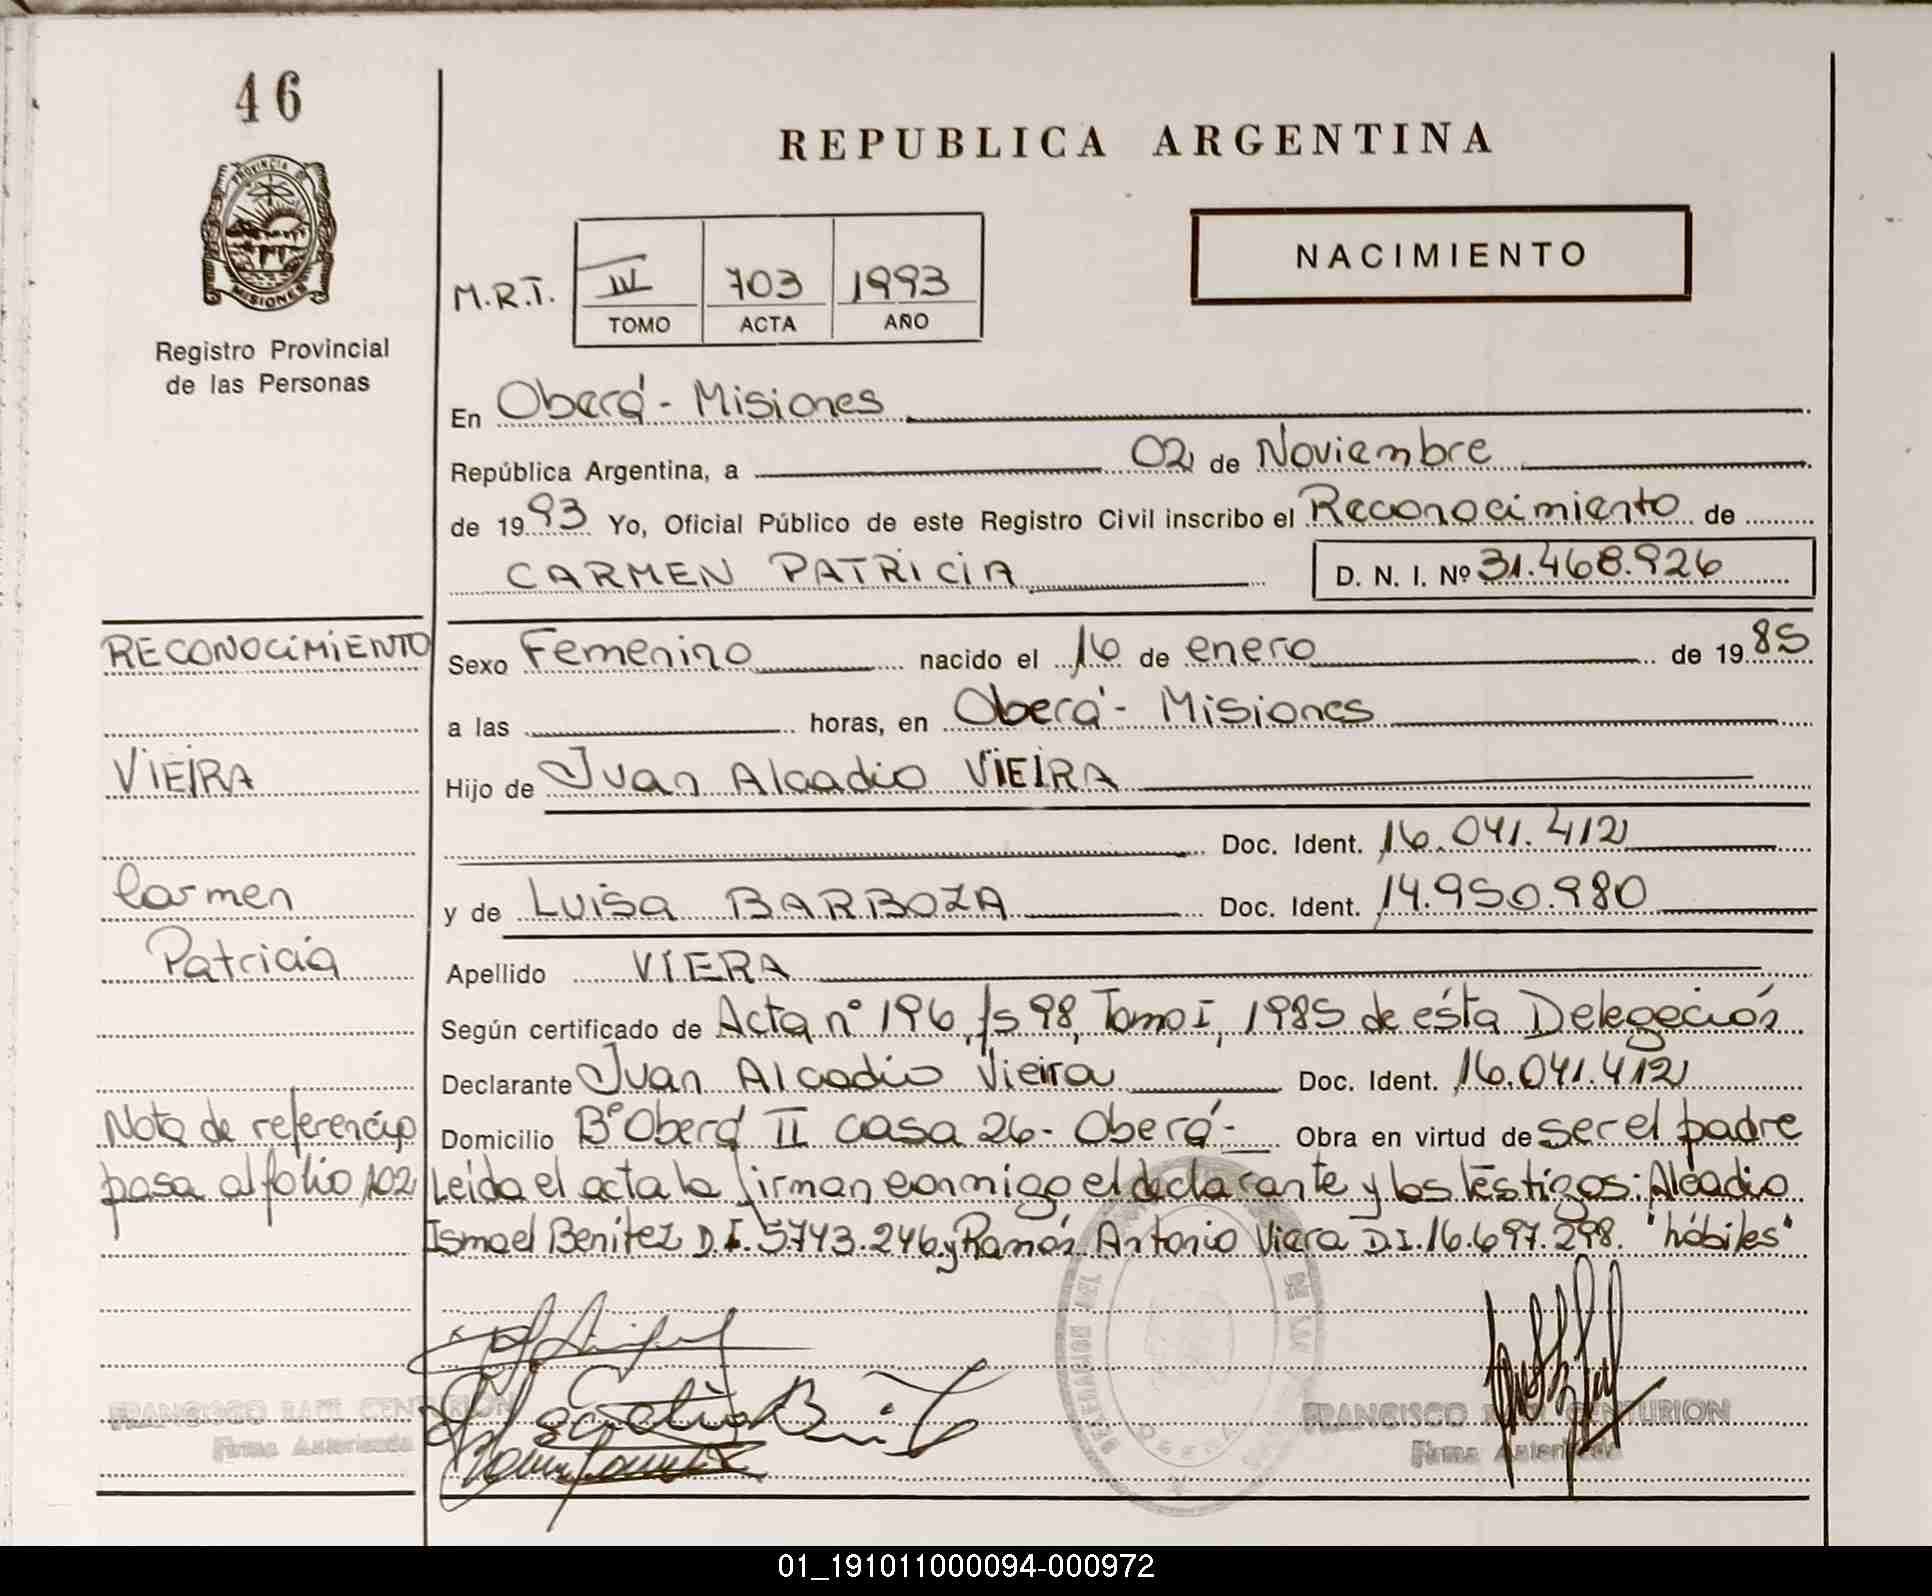 46
REPUBLICA ARGENTINA
PROVINCIA DE
MISIONES
Registro Provincial
de las Personas
NACIMIENTO
M.R.T. IV 703 1993
TOMO ACTA AÑO
En Oberá - Misiones
República Argentina, a 02 de Noviembre
de 1993 Yo, Oficial Público de este Registro Civil inscribo el Reconocimiento de
CARMEN PATRICIA D. N. I. Nº 31.468.926
RECONOCIMIENTO
Sexo Femenino nacido el 16 de enero de 1985
a las horas, en Oberá - Misiones
VIEIRA
Hijo de Juan Alcadio VIEIRA
Doc. Ident. 16.041.412
Carmen
y de Luisa BARBOZA Doc. Ident. 14.950.980
Patricia
Apellido VIERA
Según certificado de Acta nº 196, fs 98, Tomo I, 1985 de ésta Delegación
Declarante Juan Alcadio Vieira Doc. Ident. 16.041.412
Nota de referencia
Domicilio Bº Oberá II casa 26 - Oberá - Obra en virtud de ser el padre
pasa al folio 102
Leida el acta la firman conmigo el declarante y los testigos: Alcadio
Ismael Benitez D.I. 5.743.246 y Ramón Antonio Viera D.I. 16.697.298. "hábiles"
DELEGACION DEL
OBERA
FRANCISCO RAUL CENTURION
Firma Autorizada
FRANCISCO RAUL CENTURION
Firma Autorizada
01_191011000094-000972